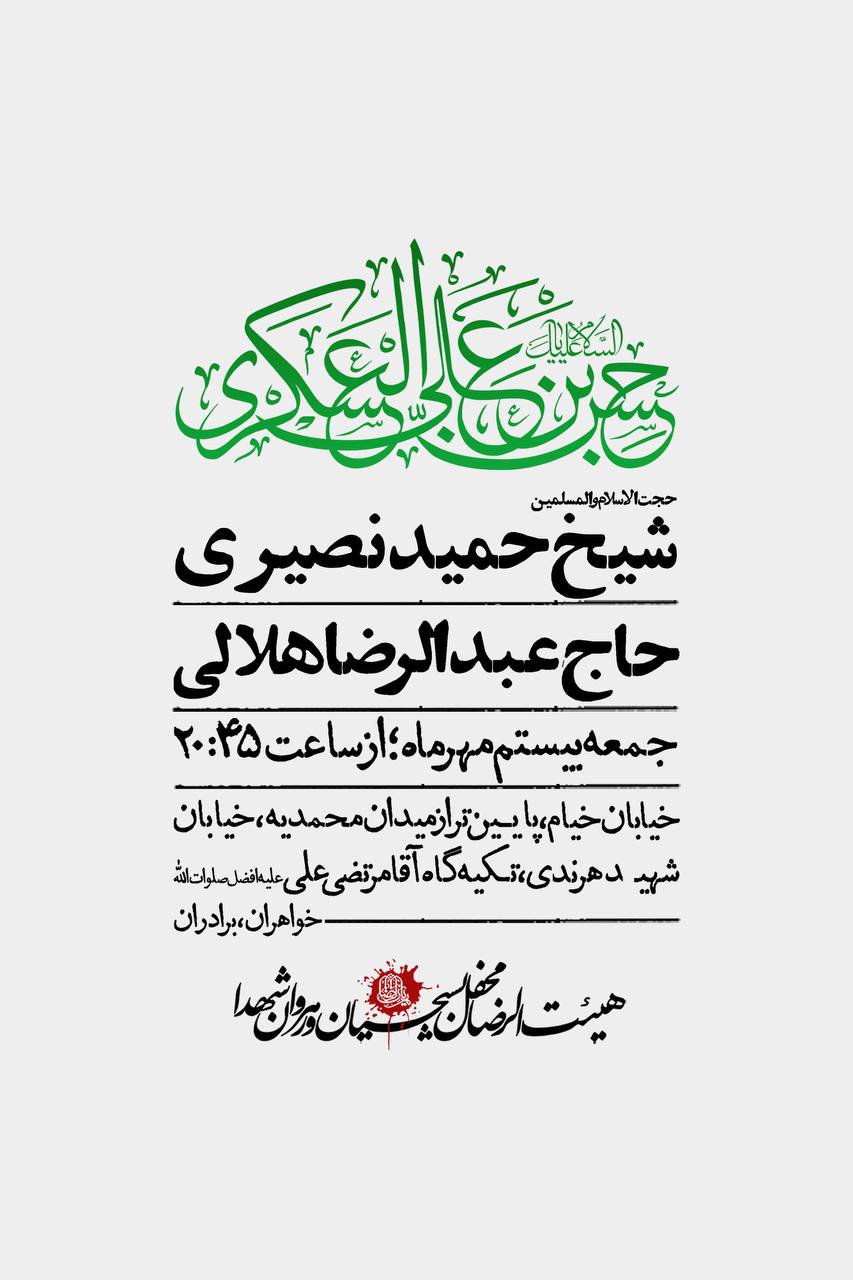 السلام علیک یا
حسن بن علی العسکری
حجت الاسلام والمسلمین
شیخ حمید نصیری
حاج عبدالرضا هلالی
جمعه بیستم مهرماه؛ از ساعت ۲۰:۴۵
خیابان خیام، پایین‌تر از میدان محمدیه، خیابان
شهید دهرندی، تکیه‌گاه آقا مرتضی علی علیه افضل صلوات الله
خواهران، برادران
هیئت الرضا محفل بسیجیان و رهروان شهدا